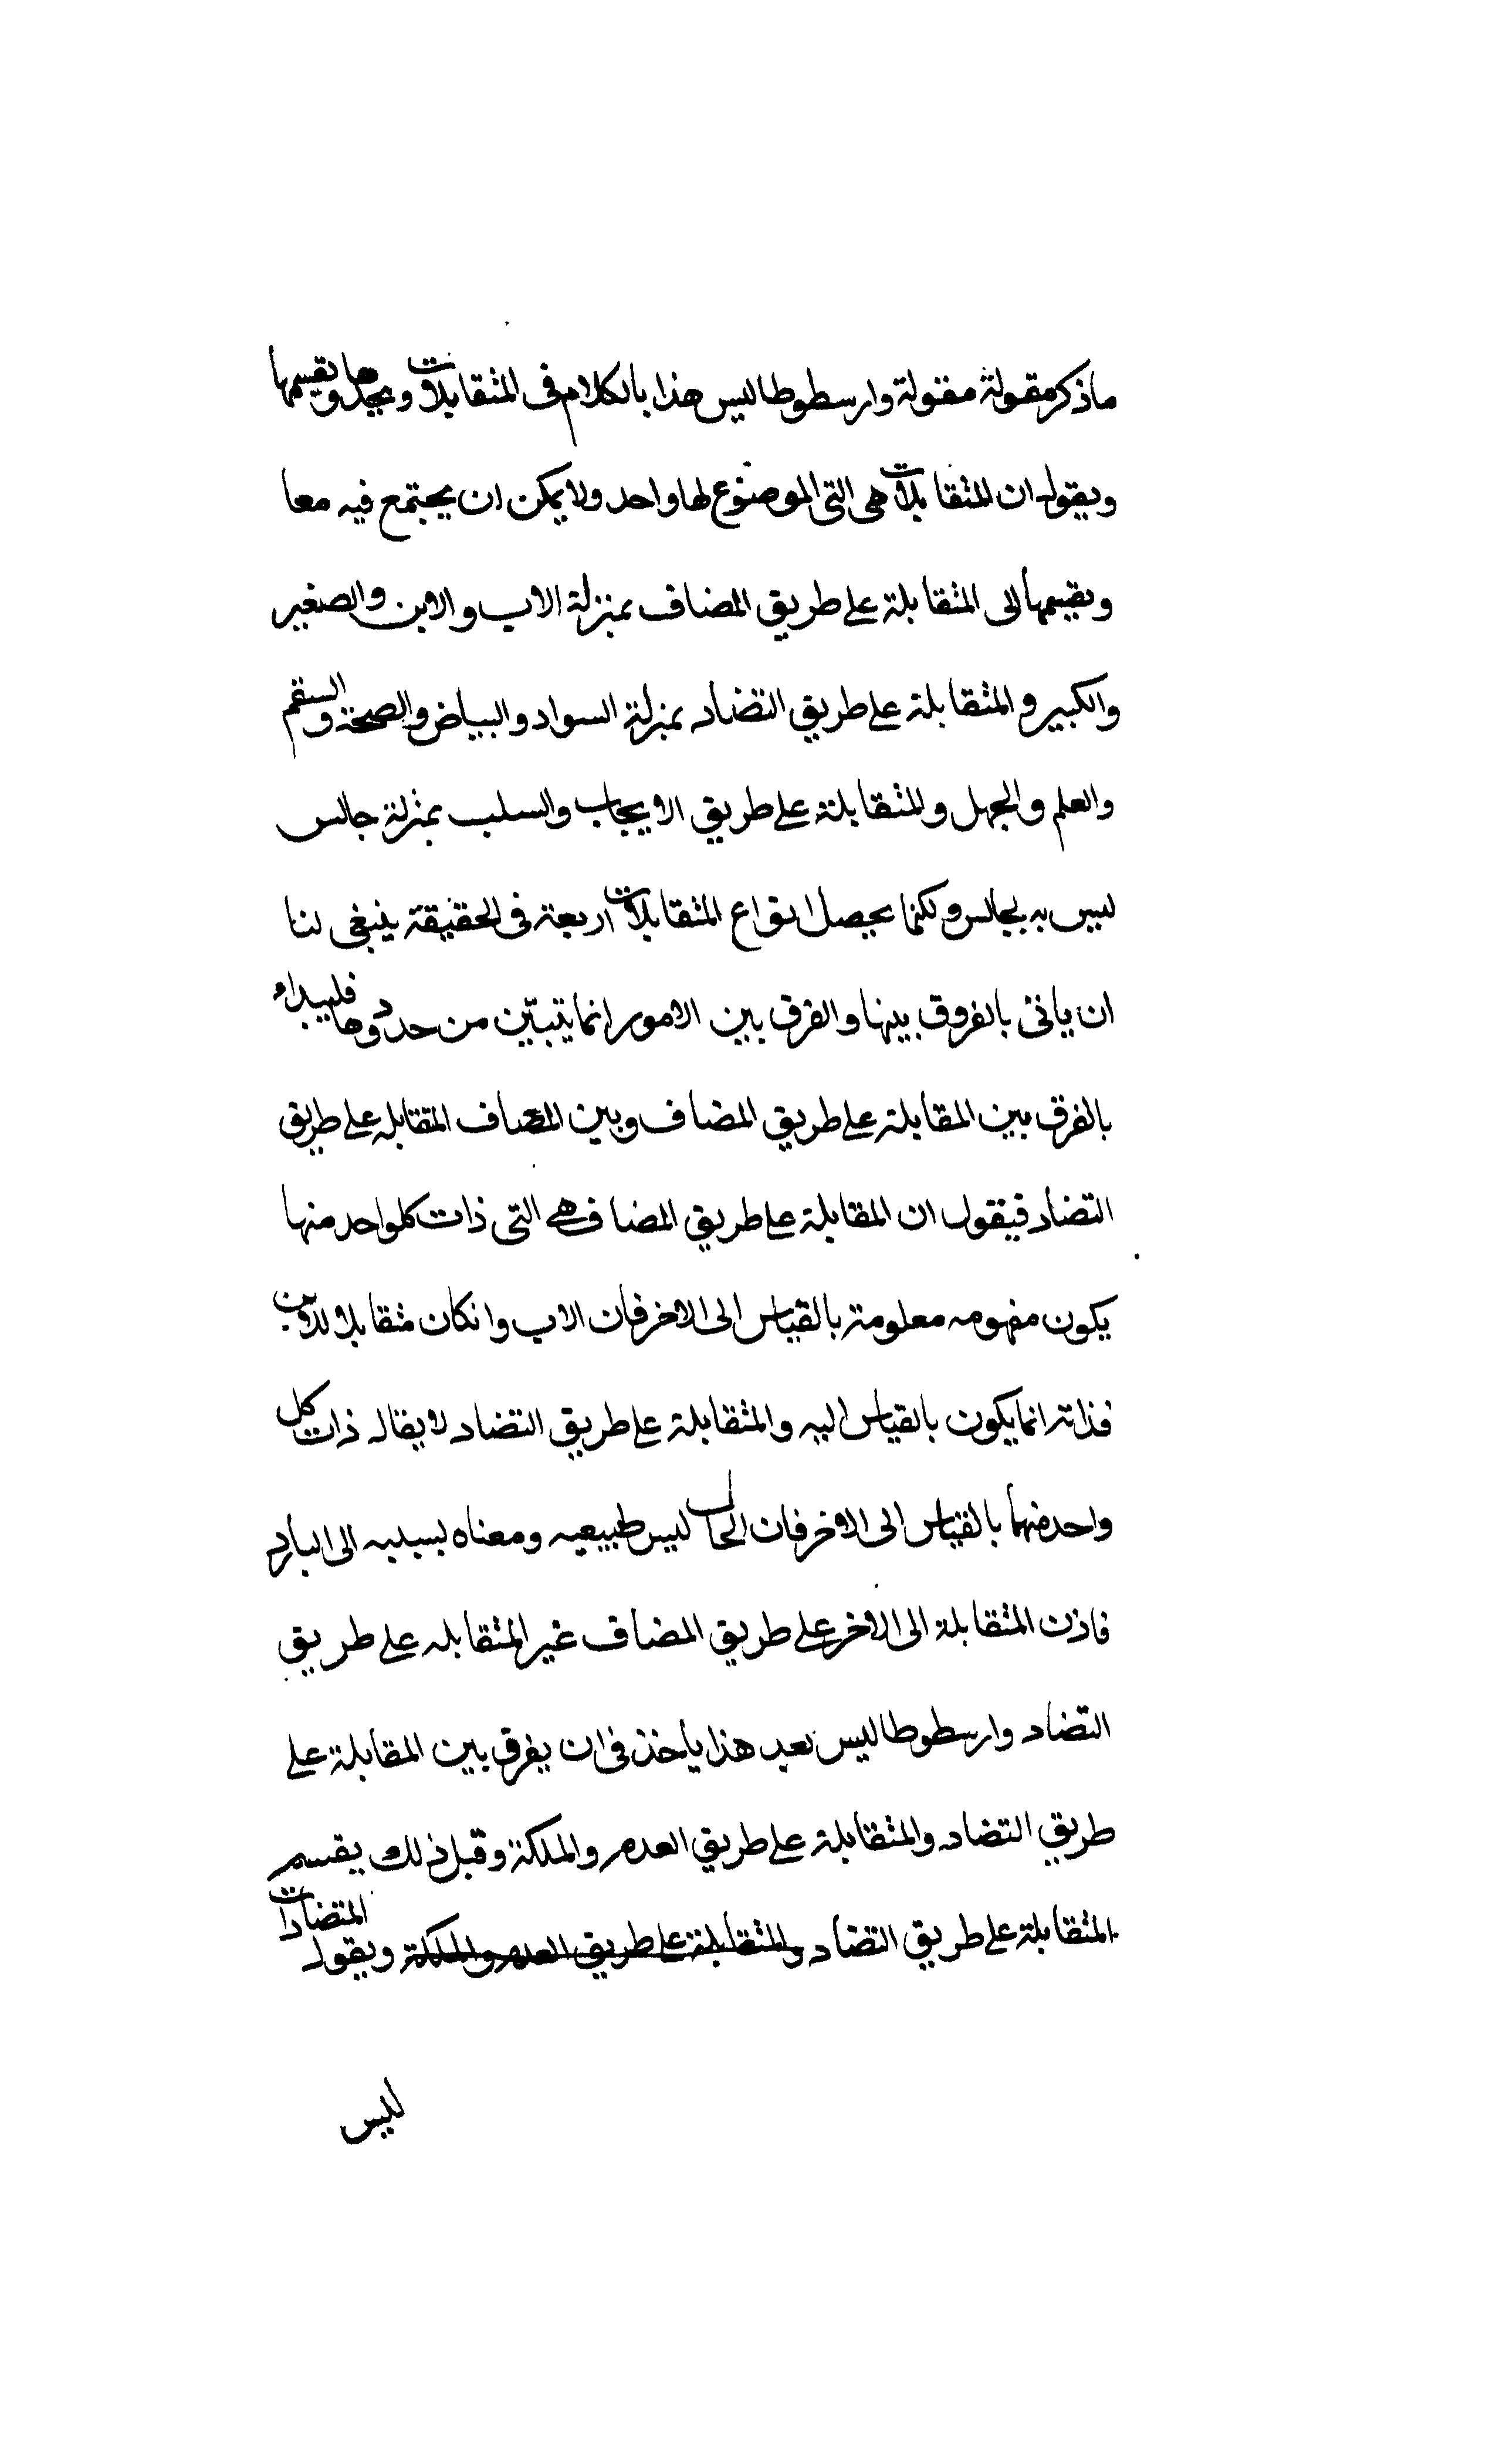 ماذكر مقولة مقولة وارسطوطاليس هذا بالكلام فى المتقابلات ويحدها ويقسمها
ويقول ان المتقابلات هى التى الموضوع لها واحد ولا يمكن ان يجتمع فيه معا
ويقسمها الى المتقابلة على طريق المضاف بمنزلة الاب والابن والصغير
والكبير والمتقابلة على طريق التضاد بمنزلة السواد والبياض والصحة والسقم
والعلم والجهل والمتقابلة على طريق الايجاب والسلب بمنزلة جالس
ليس بجالس ولكنما يحصل انواع المتقابلات اربعة فى الحقيقة ينبغى لنا
ان ياتى بالفروق بينها والفرق بين الامور انما يتبيّن من حدودها فليبداء
بالفرق بين المقابلة على طريق المضاف وبين المتقابله على طريق
التضاد فيقول ان المقابلة على طريق المضاف هى التى ذات كلواحد منها
يكون مفهومه معلومة بالقياس الى الاخر فان الاب وانكان متقابلا للابن
فذاته انما يكون بالقياس اليه والمتقابلة على طريق التضاد لا يقال ذات كل
واحد منهما بالقياس الى الاخر فان الحار ليس طبيعيه ومعناه بسببه الى البارد
فاذن المتقابلة الى الاخر على طريق المضاف غير المتقابله على طريق
التضاد وارسطوطاليس بعد هذا ياخذ فى ان يفرق بين المقابلة على
طريق التضاد والمتقابلة على طريق العدم والملكة وقبل ذلك يقسم
المتقابلة على طريق التضاد والمتقابلة على طريق العدم والملكة ويقول المتضادات
ليس